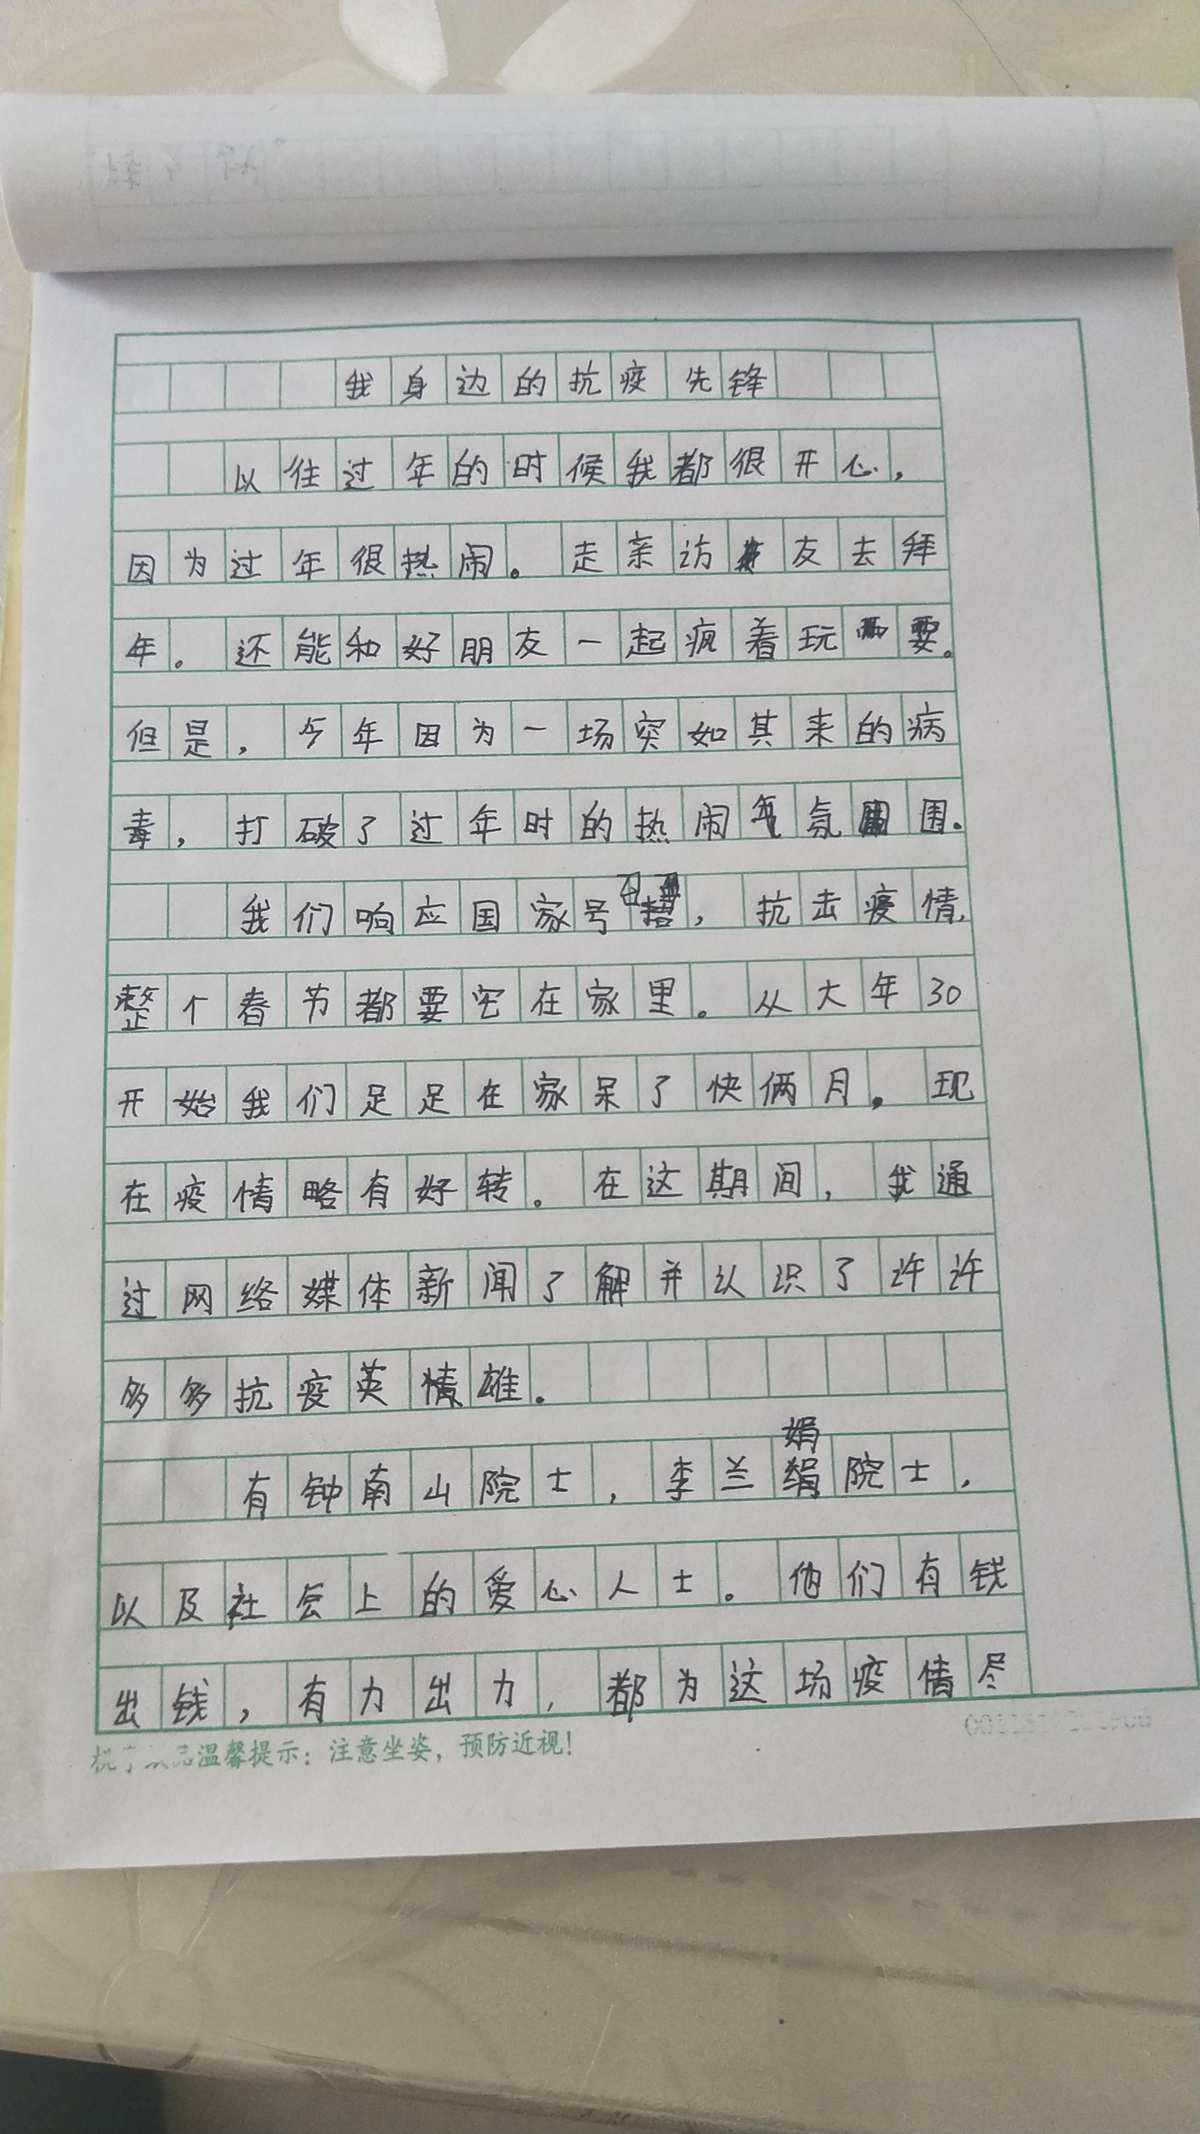 我身边的抗疫先锋
以往过年的时候我都很开心，
因为过年很热闹。走亲访友去拜
年。还能和好朋友一起疯着玩耍。
但是，今年因为一场突如其来的病
毒，打破了过年时的热闹气氛围。
我们响应国家号召，抗击疫情，
整个春节都要宅在家里。从大年30
开始我们足足在家呆了快俩月。现
在疫情略有好转。在这期间，我通
过网络媒体新闻了解并认识了许许
多多抗疫英雄。
有钟南山院士，李兰娟院士，
以及社会上的爱心人士。他们有钱
出钱，有力出力，都为这场疫情尽
温馨提示：注意坐姿，预防近视！